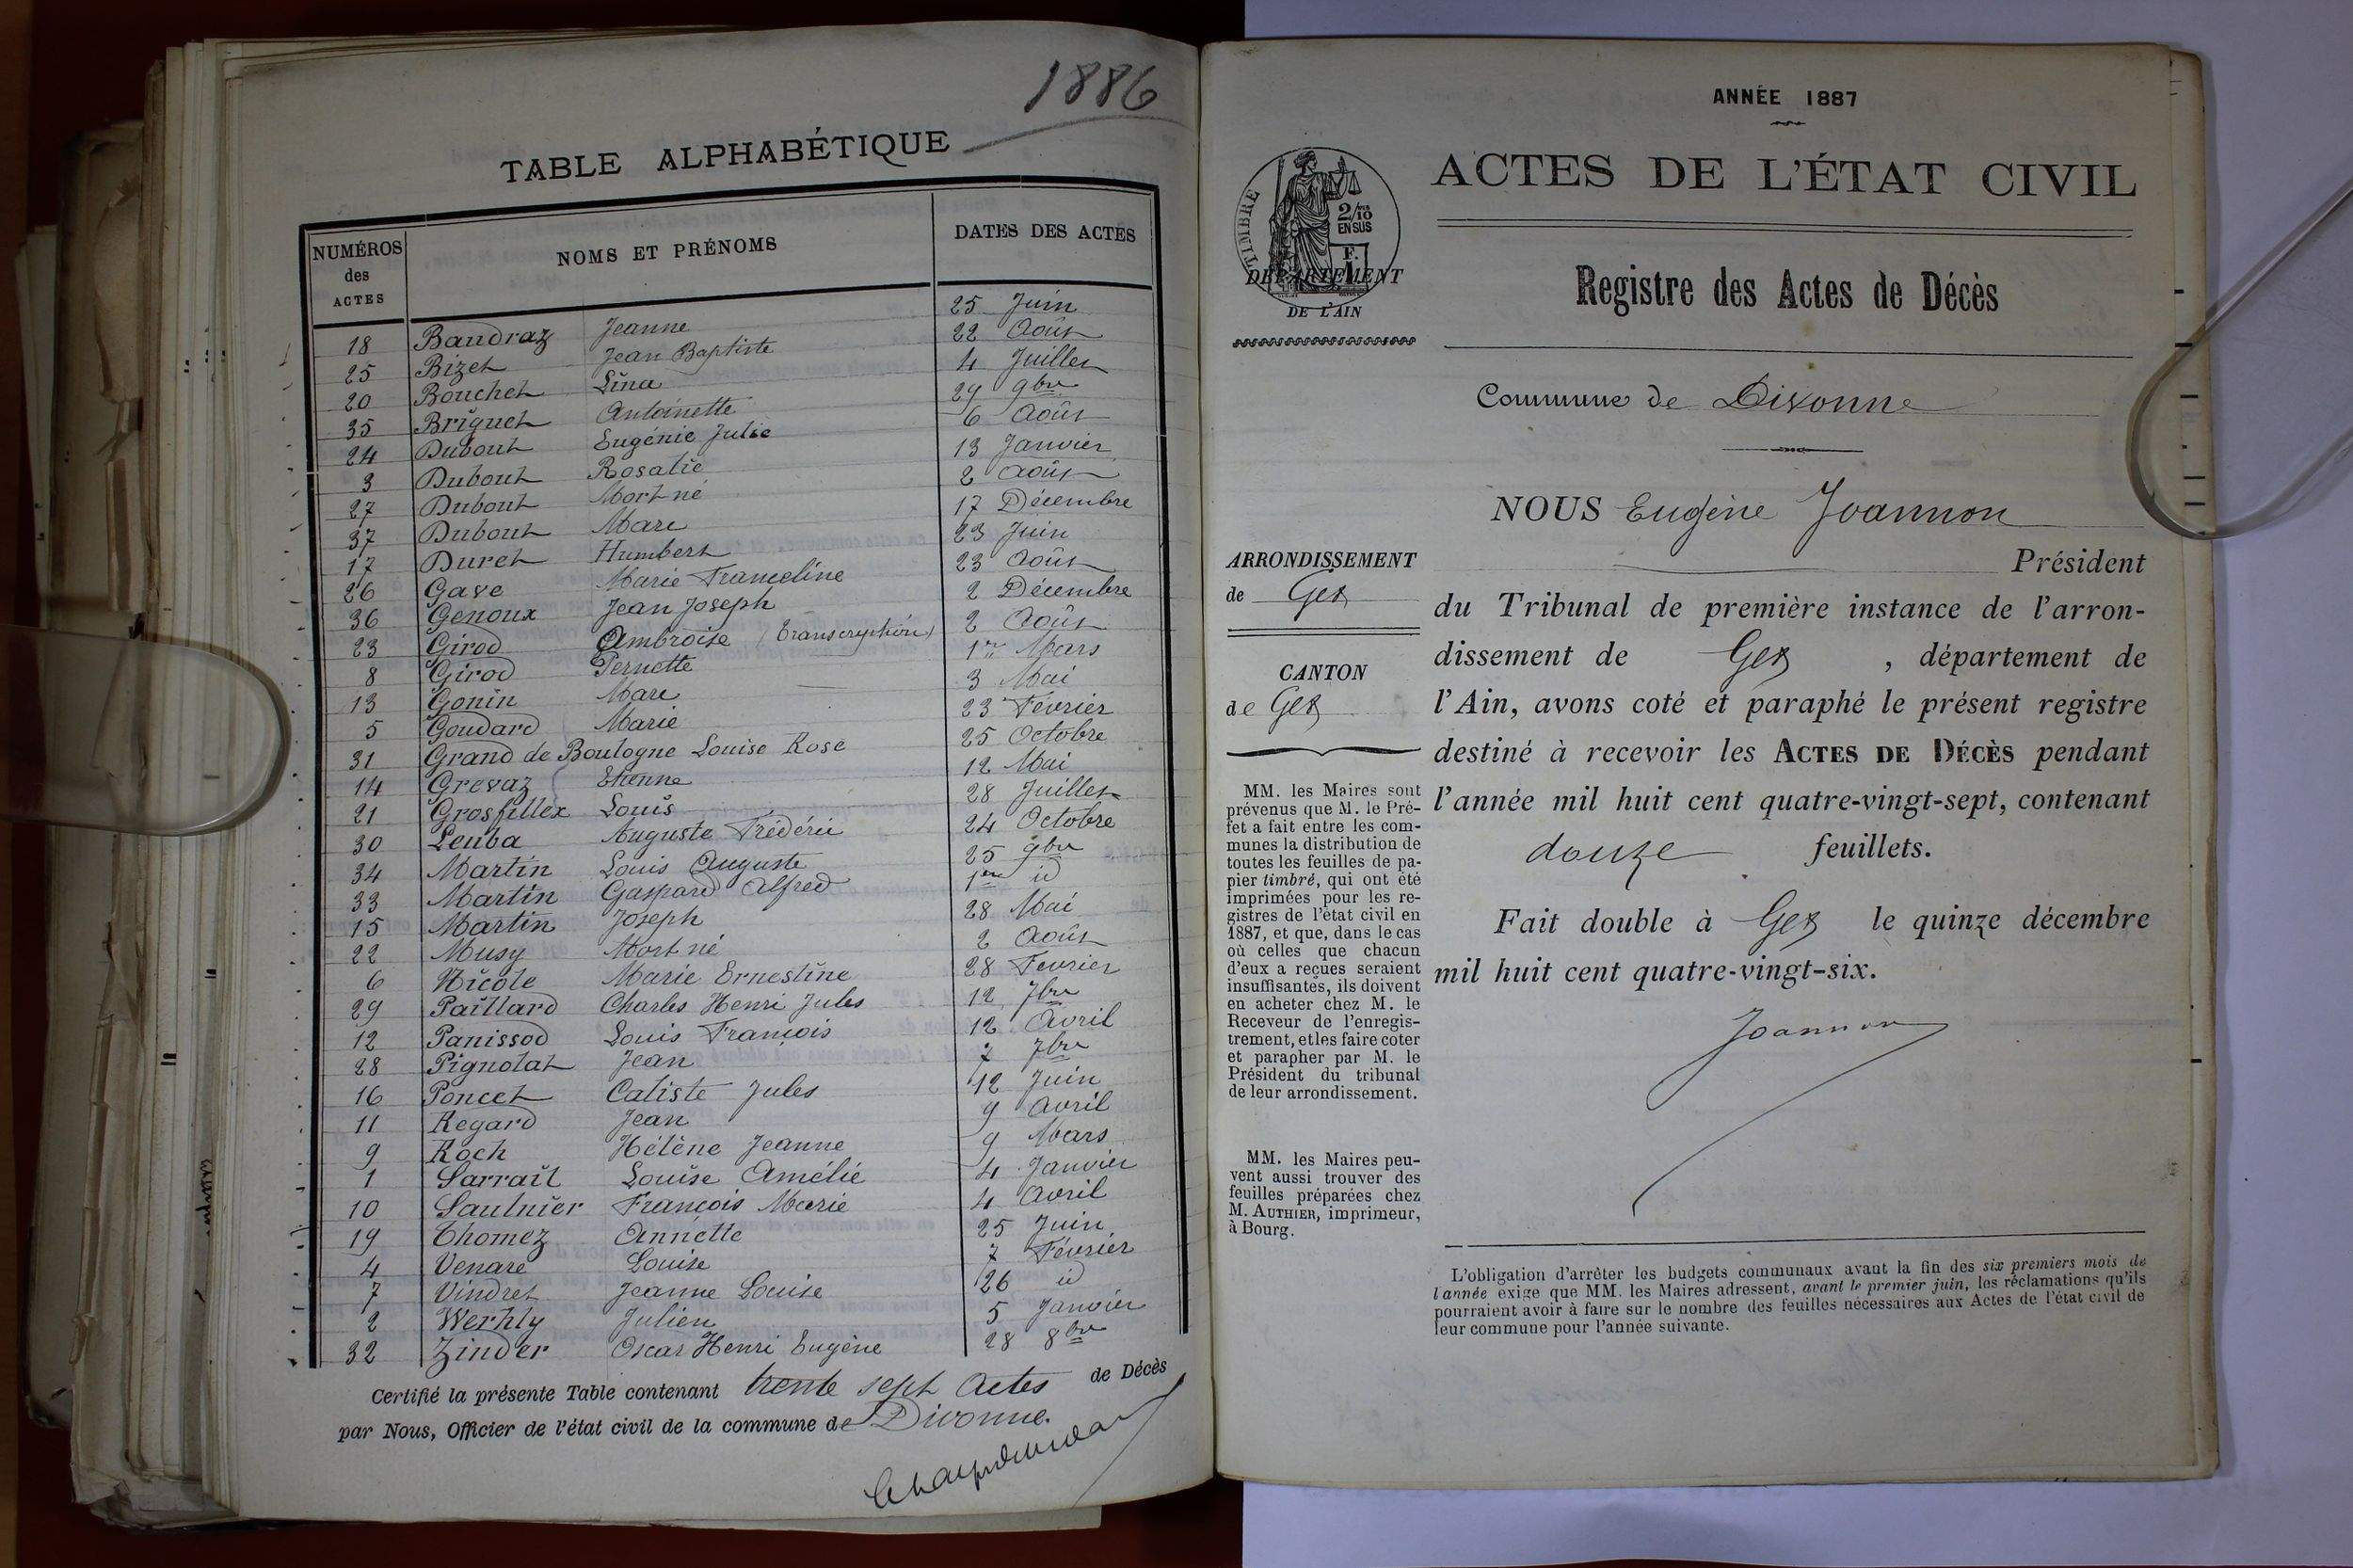 1886
TABLE ALPHABÉTIQUE
NUMÉROS des ACTES NOMS ET PRÉNOMS DATES DES ACTES
18 Baudraz Jeanne 25 Juin
25 Bizet Jean Baptiste 22 Août
20 Bouchet Lina 4 Juillet
35 Briguet Antoinette 29 9bre
24 Dubout Eugénie Julie 6 Août
3 Dubout Rosalie 13 Janvier
27 Dubout Mort né 2 Août
37 Dubout Marc 17 Décembre
17 Duret Humbert 23 Juin
26 Gave Marie Franceline 23 Août
36 Genoux Jean Joseph 2 Décembre
23 Girod Ambroise (transcription) 2 Août
8 Girod Pernette 1er Mars
13 Gonin Marc 3 Mai
5 Goudard Marie 23 Février
31 Grand de Boulogne Louise Rose 25 Octobre
14 Grevaz Etienne 12 Mai
21 Grosfillex Louis 28 Juillet
30 Leuba Auguste Frédéric 24 Octobre
34 Martin Louis Auguste 25 9bre
33 Martin Gaspard Alfred 1er id
15 Martin Joseph 28 Mai
22 Musy Mort né 2 Août
6 Nicole Marie Ernestine 28 Fevrier
29 Paillard Charles Henri Jules 12 7bre
12 Panissod Louis François 12 Avril
28 Pignolat Jean 7 7bre
16 Poncet Caliste Jules 12 Juin
11 Regard Jean 9 Avril
9 Roch Hélène Jeanne 9 Mars
1 Sarrail Louise Amélie 4 Janvier
10 Saulnier François Marie 4 Avril
19 Thomez Annette 25 Juin
4 Venare Louise 7 Février
7 Vindret Jeanne Louise 26 id
2 Werhly Julien 5 Janvier
32 Zinder Oscar Henri Eugène 28 8bre
Certifié la présente Table contenant trente sept Actes de Décès
par Nous, Officier de l'état civil de la commune de Divonne.
ANNÉE 1887
ACTES DE L'ÉTAT CIVIL
TIMBRE
2/10
EN SUS
F.
DÉPARTEMENT
DE L'AIN
Registre des Actes de Décès
Commune de Divonne
NOUS Eugène Joannon
Président
du Tribunal de première instance de l'arron-
dissement de Gex, département de
l'Ain, avons coté et paraphé le présent registre
destiné à recevoir les ACTES DE DÉCÈS pendant
l'année mil huit cent quatre-vingt-sept, contenant
douze feuillets.
Fait double à Gex le quinze décembre
mil huit cent quatre-vingt-six.
Joannon
ARRONDISSEMENT
de Gex
CANTON
de Gex
MM. les Maires sont
prévenus que M. le Pré-
fet a fait entre les com-
munes la distribution de
toutes les feuilles de pa-
pier timbré, qui ont été
imprimées pour les re-
gistres de l'état civil en
1887, et que, dans le cas
où celles que chacun
d'eux a reçues seraient
insuffisantes, ils doivent
en acheter chez M. le
Receveur de l'enregis-
trement, et les faire coter
et parapher par M. le
Président du tribunal
de leur arrondissement.
MM. les Maires peu-
vent aussi trouver des
feuilles préparées chez
M. AUTHIER, imprimeur,
à Bourg.
L'obligation d'arrêter les budgets communaux avant la fin des six premiers mois de
l'année exige que MM. les Maires adressent, avant le premier juin, les réclamations qu'ils
pourraient avoir à faire sur le nombre des feuilles nécessaires aux Actes de l'état civil de
leur commune pour l'année suivante.